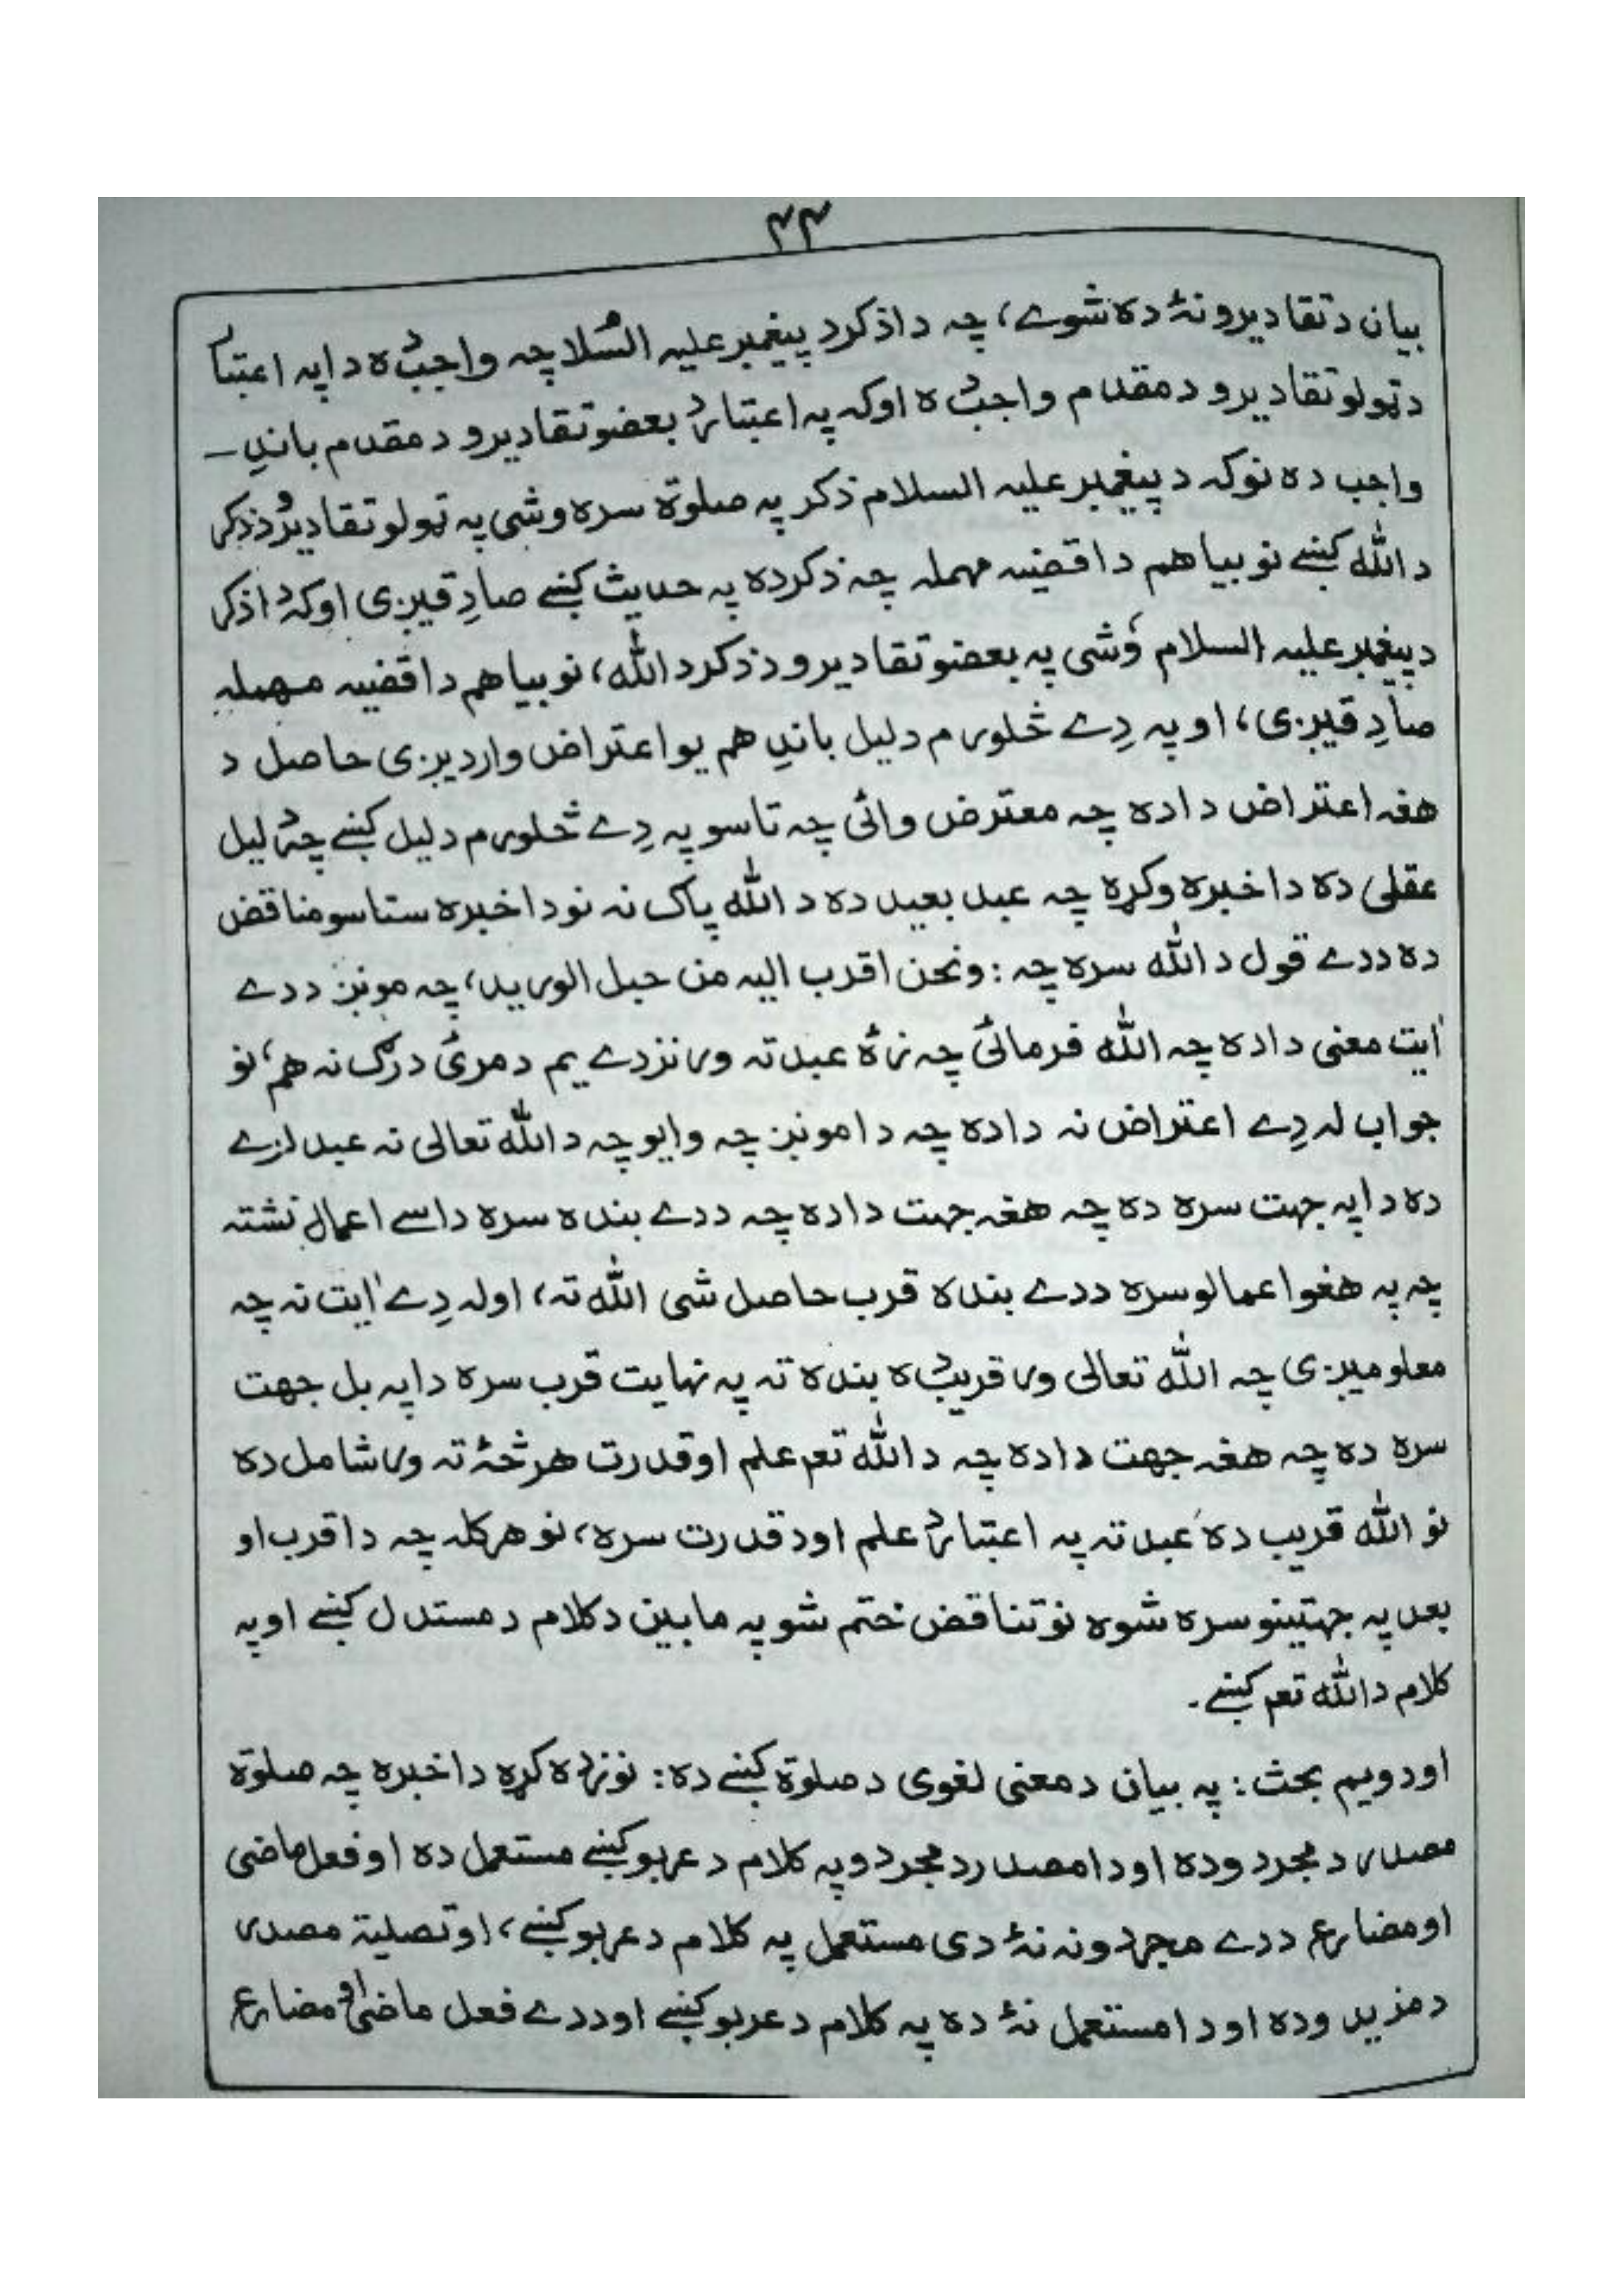 ۴۴
بیان د تقادیرو نهٔ دہ شوے، چہ دا ذکر د پیغمبر علیہ السّلام چہ واجب دہ دا پہ اعتبار
د ټولو تقادیرو د مقدم واجب دہ اوکہ پہ اعتبار د بعضو تقادیرو د مقدم باندِ ۔
واجب دہ نو کہ د پیغمبر علیہ السلام ذکر پہ صلوٰۃ سرہ وشی پہ ټولو تقادیرو د ذکر
د اللّٰہ کښے نو بیا هم دا قضیہ مهملہ چہ ذکر دہ پہ حدیث کښے صادِقیږی اوکہ دا ذکر
د پیغمبر علیہ السلام وُشی پہ بعضو تقادیرو د ذکر د اللّٰہ، نو بیا هم دا قضیہ مهملہ
صادِقیږی، او پہ دِے څلورم دلیل باندِ هم یو اعتراض واردیږی حاصل د
هغہ اعتراض دا دہ چہ معترض وائی چہ تاسو پہ دِے څلورم دلیل کښے چہ دلیل
عقلی دہ دا خبرہ وکړہ چہ عبد بعید دہ د اللّٰہ پاک نہ نو دا خبرہ ستاسو مناقض
دہ ددے قول د اللّٰہ سرہ چہ : ونحن اقرب الیہ من حبل الورید، چہ مونږ ددے
اٰیت معنی دا دہ چہ اللّٰہ فرمائی چہ زہٗ عبد تہ ورنزدے یم د مرئ درګ نہ هم، نو
جواب لہ دِے اعتراض نہ دا دہ چہ دا مونږ چہ وایو چہ د اللّٰہ تعالی نہ عبد لرے
دہ دا پہ جهت سرہ دہ چہ هغہ جهت دا دہ چہ ددے بندہ سرہ داسے اعمال نشتہ
چہ پہ هغو اعمالو سرہ ددے بندہ قرب حاصل شی اللّٰہ تہ، اولہ دِے اٰیت نہ چہ
معلومیږی چہ اللّٰہ تعالی ورقریب دہ بندہ تہ پہ نهایت قرب سرہ دا پہ بل جهت
سرہ دہ چہ هغہ جهت دا دہ چہ د اللّٰہ تعم علم او قدرت هر څہٗ تہ ورشامل دہ
نو اللّٰہ قریب دہ عبد تہ پہ اعتبار د علم او د قدرت سرہ، نو هرکلہ چہ دا قرب او
بعد پہ جهتینو سرہ شوہ نو تناقض ختم شو پہ مابین د کلام د مستدل کښے او پہ
کلام د اللّٰہ تعم کښے۔
او دویم بحث : پہ بیان د معنی لغوی د صلوٰۃ کښے دہ : نو زدہ کړہ دا خبرہ چہ صلوٰۃ
مصدر د مجرد و دہ او دا مصدر د مجرد و پہ کلام د عربو کښے مستعمل دہ او فعل ماضی
او مضارع ددے مجردونہ نهٔ دی مستعمل پہ کلام د عربو کښے، او تصلیۃ مصدر
د مزید و دہ او دا مستعمل نهٔ دہ پہ کلام د عربو کښے او ددے فعل ماضی او مضارع